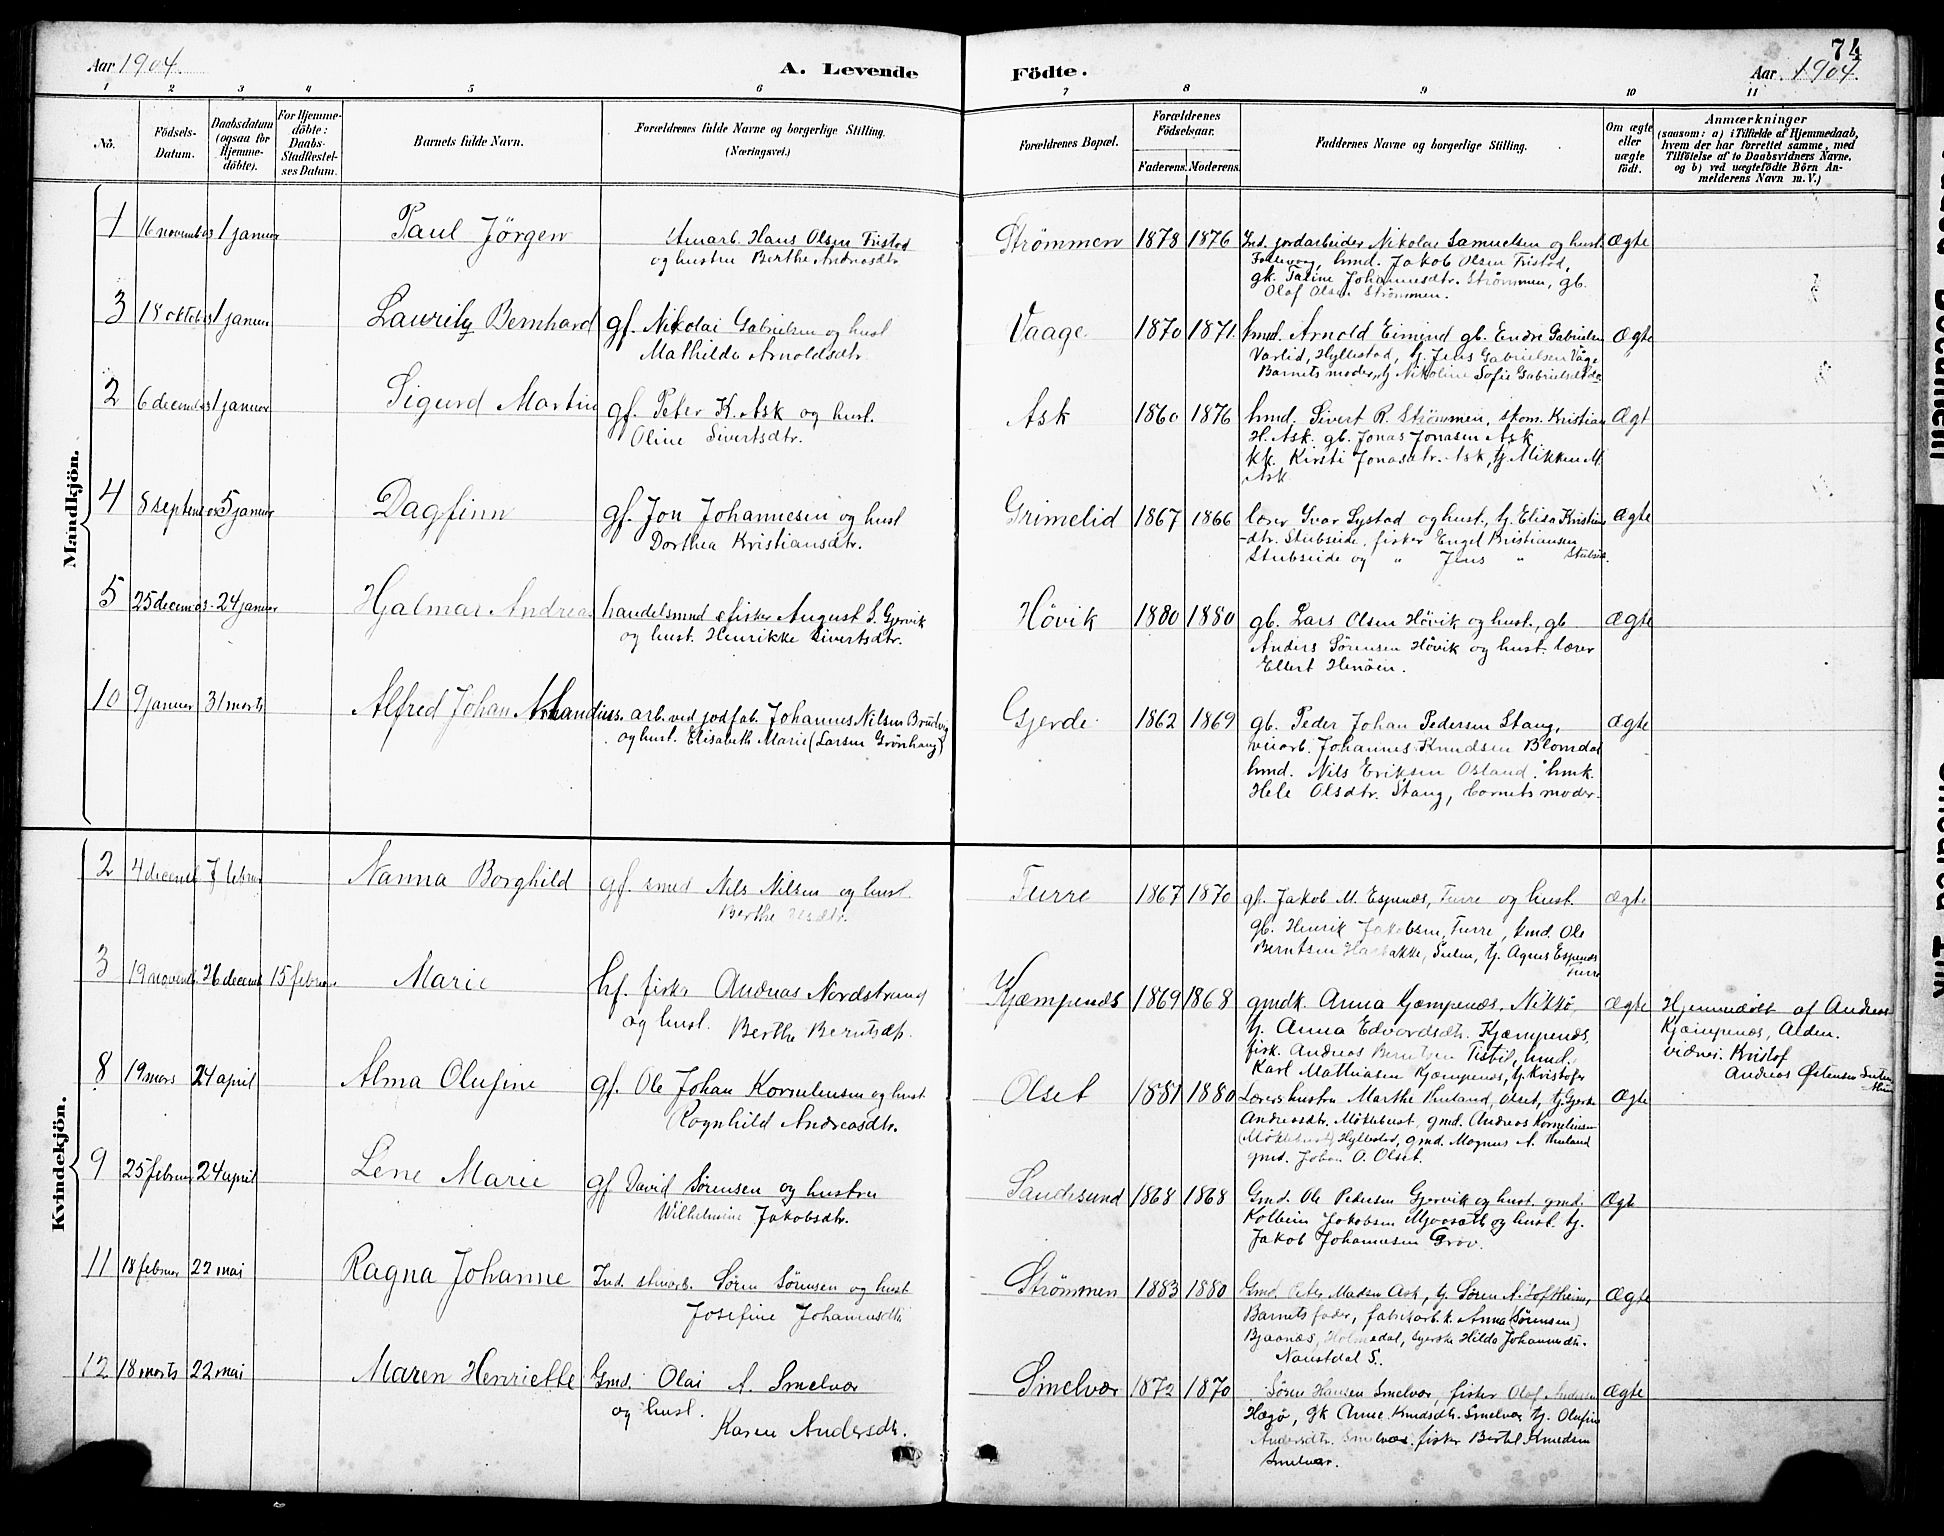 Aar 1904.
A. Levende
Födte.
74
Aar 1904.
1 2 3 4 5 6 7 8 9 10 11
No.
Födsels-
Datum.
Daabsdatum
(ogsaa for
Hjemme-
döbte).
For Hjemme-
döbte:
Daabs-
Stadfæstel-
ses Datum.
Barnets fulde Navn.
Forældrenes fulde Navne og borgerlige Stilling.
(Næringsvei.)
Forældrenes Bopæl.
Forældrenes
Födselsaar.
Faderens. Moderens.
Faddernes Navne og borgerlige Stilling.
Om ægte
eller
uægte
födt.
Anmærkninger
(saasom: a) i Tilfælde af Hjemmedaab,
hvem der har forrettet samme, med
Tilföielse af to Daabsvidners Navne,
og b) ved uægtefödte Börn An-
melderens Navn m. V.)
Mandkjön.
1 16 november 1 januar Paul Jörgen Hans Olsen Tristad
og hustru Berthe Andreasdtr
Strömmen 1878 1876 Ind. jordarbeider Nikolai Samuelsen og hust. Ægte
hmd. Jakob Olsen Tristad,
gk. Taline Johannesdtr. Strömmen, gb.
Olaf Olsen Strömmen.
3 18 oktob 1 januar Bernhard gf. Nikolai Gabrielsen og hust
Mathilde Arnoldsdtr.
Vaage 1870 1871. Arnold gb. Endre Gabrielsen Ægte
Hyllestad, tj. Jens Gabrielsen Våge
Barnets moder, tj Nikoline Sofie
2 6 decemb 1 januar Sigurd Martin gf. Peter K. Ask og hust.
Oline Sivertsdtr.
Ask 1860 1876 hmd. Sivert R. Strömmen, skom. Kristian Ægt
H. Ask. gb. Jonas Jonasen Ask
kk. Kirsti Jonasdtr. Ask, tj Mikken M.
Ask
4 8 septem 5 januar Dagfinn gf. Jon Johannesen og hust
Dorthea Kristiansdtr.
Grimelid 1867 1866 lærer Ivar Systad og hust., tj. Elisa Kristians Ægte
-dtr. Stubseide, fisker Engel Kristiansen
Stubseide og " Jens "
5 25 decem 24 januar Hjalmar Andreas handelsmnd & fisker August S. Gjervik
og hust. Henrikke Sivertsdtr.
Hövik 1880 1880 gb. Lars Olsen Hövik og hust., gb Ægte
Anders Sörensen Hövik og hust. lærer
Ellert Henöen.
10 9 januar 31 marts Alfred Johan arb. ved jodfab. Johannes Nilsen
og hust. Elisabeth Marie (Larsen Grönhaug)
Gjerde 1862 1869 gb. Peder Johan Pedersen Stang, Ægte
veiarb. Johannes Knudsen Blomdal
hmd. Nils Eriksen Osland. hmk.
Hele Olsdtr. Stang, barnets moder.
Kvindekjön.
2 4 decemb 7 februar Nanna Borghild gf. smed Nils Nilsen og hust.
Berthe
Furre 1867 1870 gf. Jakob M. Espenæs, Furre og hust. ægte
gb. Henrik Jakobsen, Furre, hmd. Ole
Berntsen Sulen, tj. Agnes Espenæs
Furre
3 19 novemb 26 decemb 15 februar Marie hf. fisker Andreas Nordstrand
og hust. Berthe Berntsdtr.
Kjæmpenæs 1869 1868 gmdk. Anna Kjæmpenæs, ægte
tj. Anna Edvardsdtr. Kjæmpenæs,
fisk. Andreas Berntsen hmd.
Karl Mathiasen Kjæmpenæs, tj. Kristofer
Hjemmedöbt af Andreas
Kjæmpenæs, Alden.
vidner: Kristof
Andreas Østensen
8 19 mars 24 april Alma Olufine gf. Ole Johan Kornelensen og hust
Ragnhild Andreasdtr.
Olset 1881 1880 Lærers hustru Marthe Olset, tj. Ægte
Andreasdtr. Möklebust, gmd. Andreas Kornelensen
(Möklebust) Hyllestad, gmd. Magnus A.
gmd. Johan O. Olset.
9 25 februar 24 april Lene Marie gf David Sörensen og hustru
Wilhelmine Jakobsdtr.
Sandesund 1868 1868 Gmd. Ole Pedersen Gjervik og hust. gmd. Ægte
Kolbein Jakobsen og hust. tj.
Jakob Johannesen Grov.
11 18 februar 22 mai Ragna Johanne Ind. Sören Sörensen og hust
Josefine Johannesdtr
Strömmen 1883 1880 Gmd. Peter Madsen Ask, tj. Sören N. Ægte
Barnets fader, fabrikarb.k. Anna (Sörensen)
Bjaanæs, Holmedal, syerske Hilda Johannesdtr.
Naustdal S.
12 18 marts 22 mai Maren Henriette Gmd. Olai A. Smelvær
og hust.
Karen Andersdtr.
Smelvær 1872 1870 Sören Hansen Smelvær, fisker Olaf Andersen Ægte
Hægö, gk Anne Knudsdtr. Smelvær tj. Olufine
Andersdtr. Smelvær. fisker Bertel Knudsen
Smelvær.